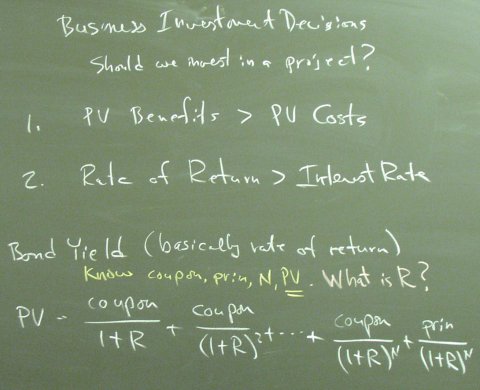 Business Investment Decisions
Should we invest in a project?
1. PV Benefits > PV Costs
2. Rate of Return > Interest Rate
Bond Yield (basically rate of return)
Know coupon, prin, N, PV. What is R?
PV - coupon/1+R + coupon/(1+R)² + ··· + coupon/(1+R)ᴺ + prin/(1+R)ᴺ